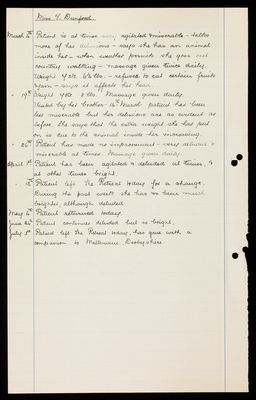 Miss Y. Dunford.
March 12th Patient is at times very agitated & miserable - talks
more of her delusions - says she has an animal
inside her - when weather permits she goes out
country walking - massage given twice daily.
Weight 7 st. 6½ lbs. - refused to eat certain fruits
given - says it affects her head.
" 19th Weight 7 st. 8 lbs. Massage given daily.
Visited by her brother 16th March. patient has been
less miserable but her delusions are as evident as
before. She says that the extra weight she has put
on is due to the animal inside her increasing.
" 26th Patient has made no improvement - very deluded &
miserable at times. Massage given daily.
April 1st Patient has been agitated & deluded at times, &
at other times bright.
Patient left the Retreat today for a change.
During the past week she has been much
brighter, although deluded.
May 6th Patient returned today.
June 24th Patient continues deluded but is bright.
July 8th Patient left the Retreat today, has gone with a
companion to Melbourne, Derbyshire